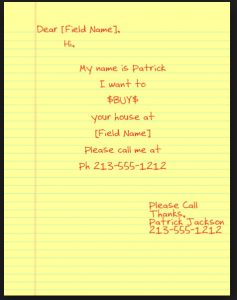 Dear [Field Name],
Hi,
My name is Patrick
I want to
$BUY$
your house at
[Field Name]
Please call me at
Ph 213-555-1212
Please Call
Thanks,
Patrick Jackson
213-555-1212